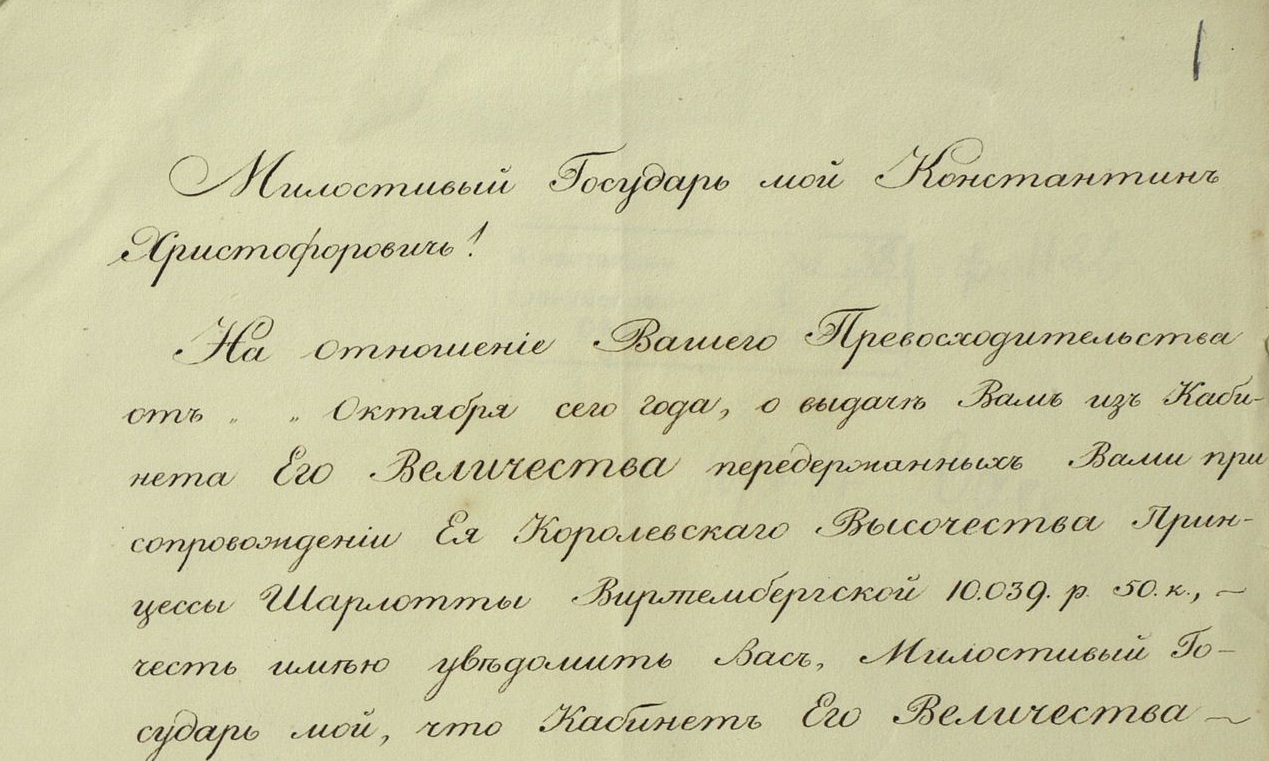 1
Милостивый Государь мой Константинъ
Христофоровичъ!
На отношеніе Вашего Превосходительства
отъ „ „ Октября сего года, о выдачѣ Вамъ изъ Каби-
нета Его Величества передержанныхъ Вами при
сопровожденіи Ея Королевскаго Высочества Прин-
цессы Шарлотты Виртембергской 10.039. р. 50. к., —
честь имѣю увѣдомить Васъ, Милостивый Го-
сударь мой, что Кабинетъ Его Величества —